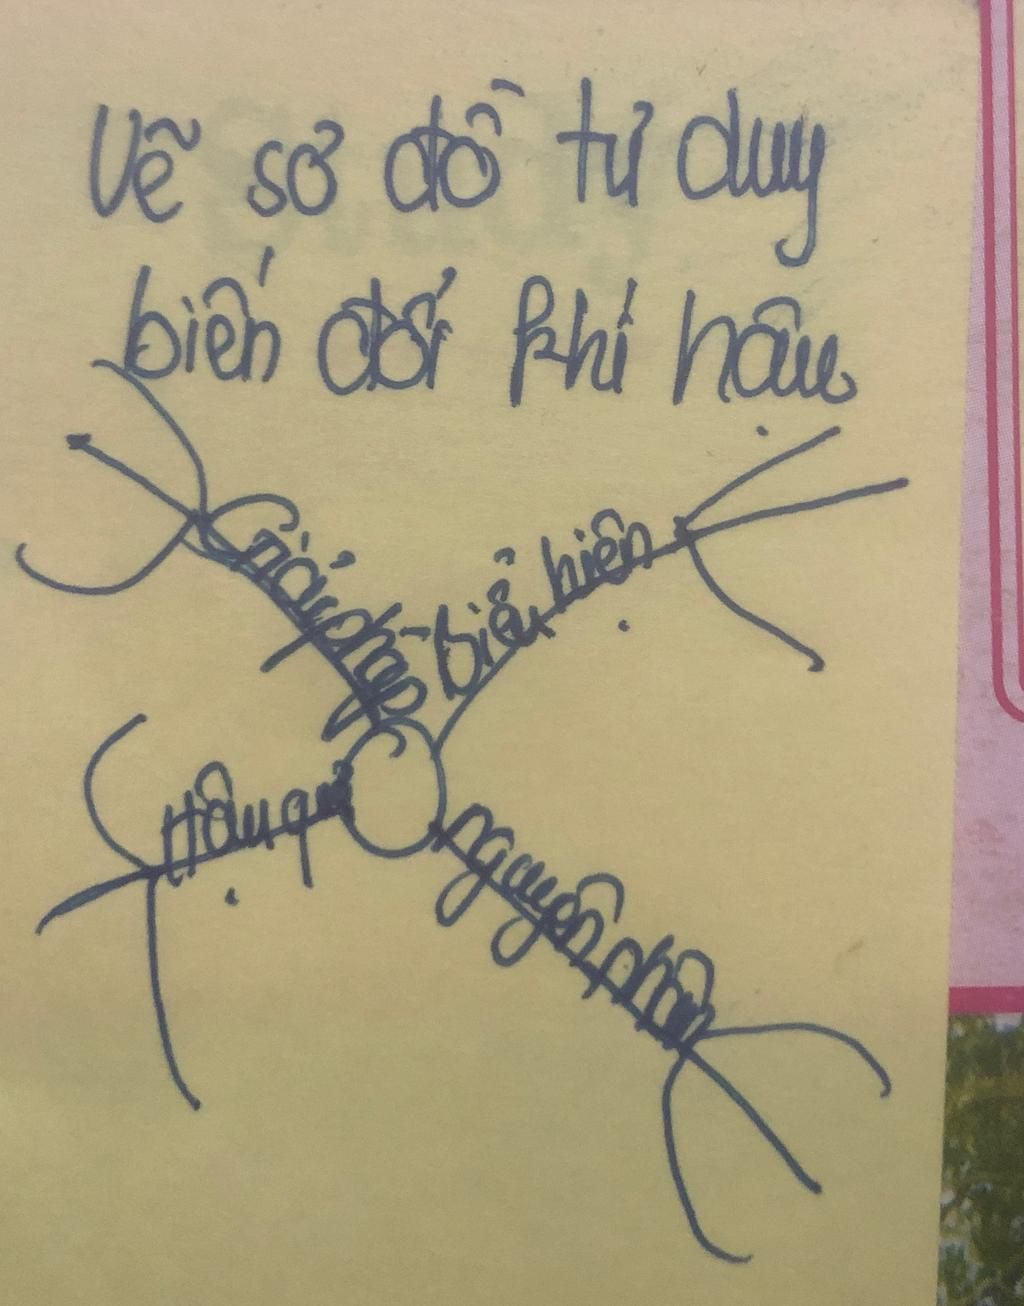 Vẽ sơ đồ tư duy
biến đổi khí hậu
Giải pháp
biểu hiện
Hậu quả
nguyên nhân